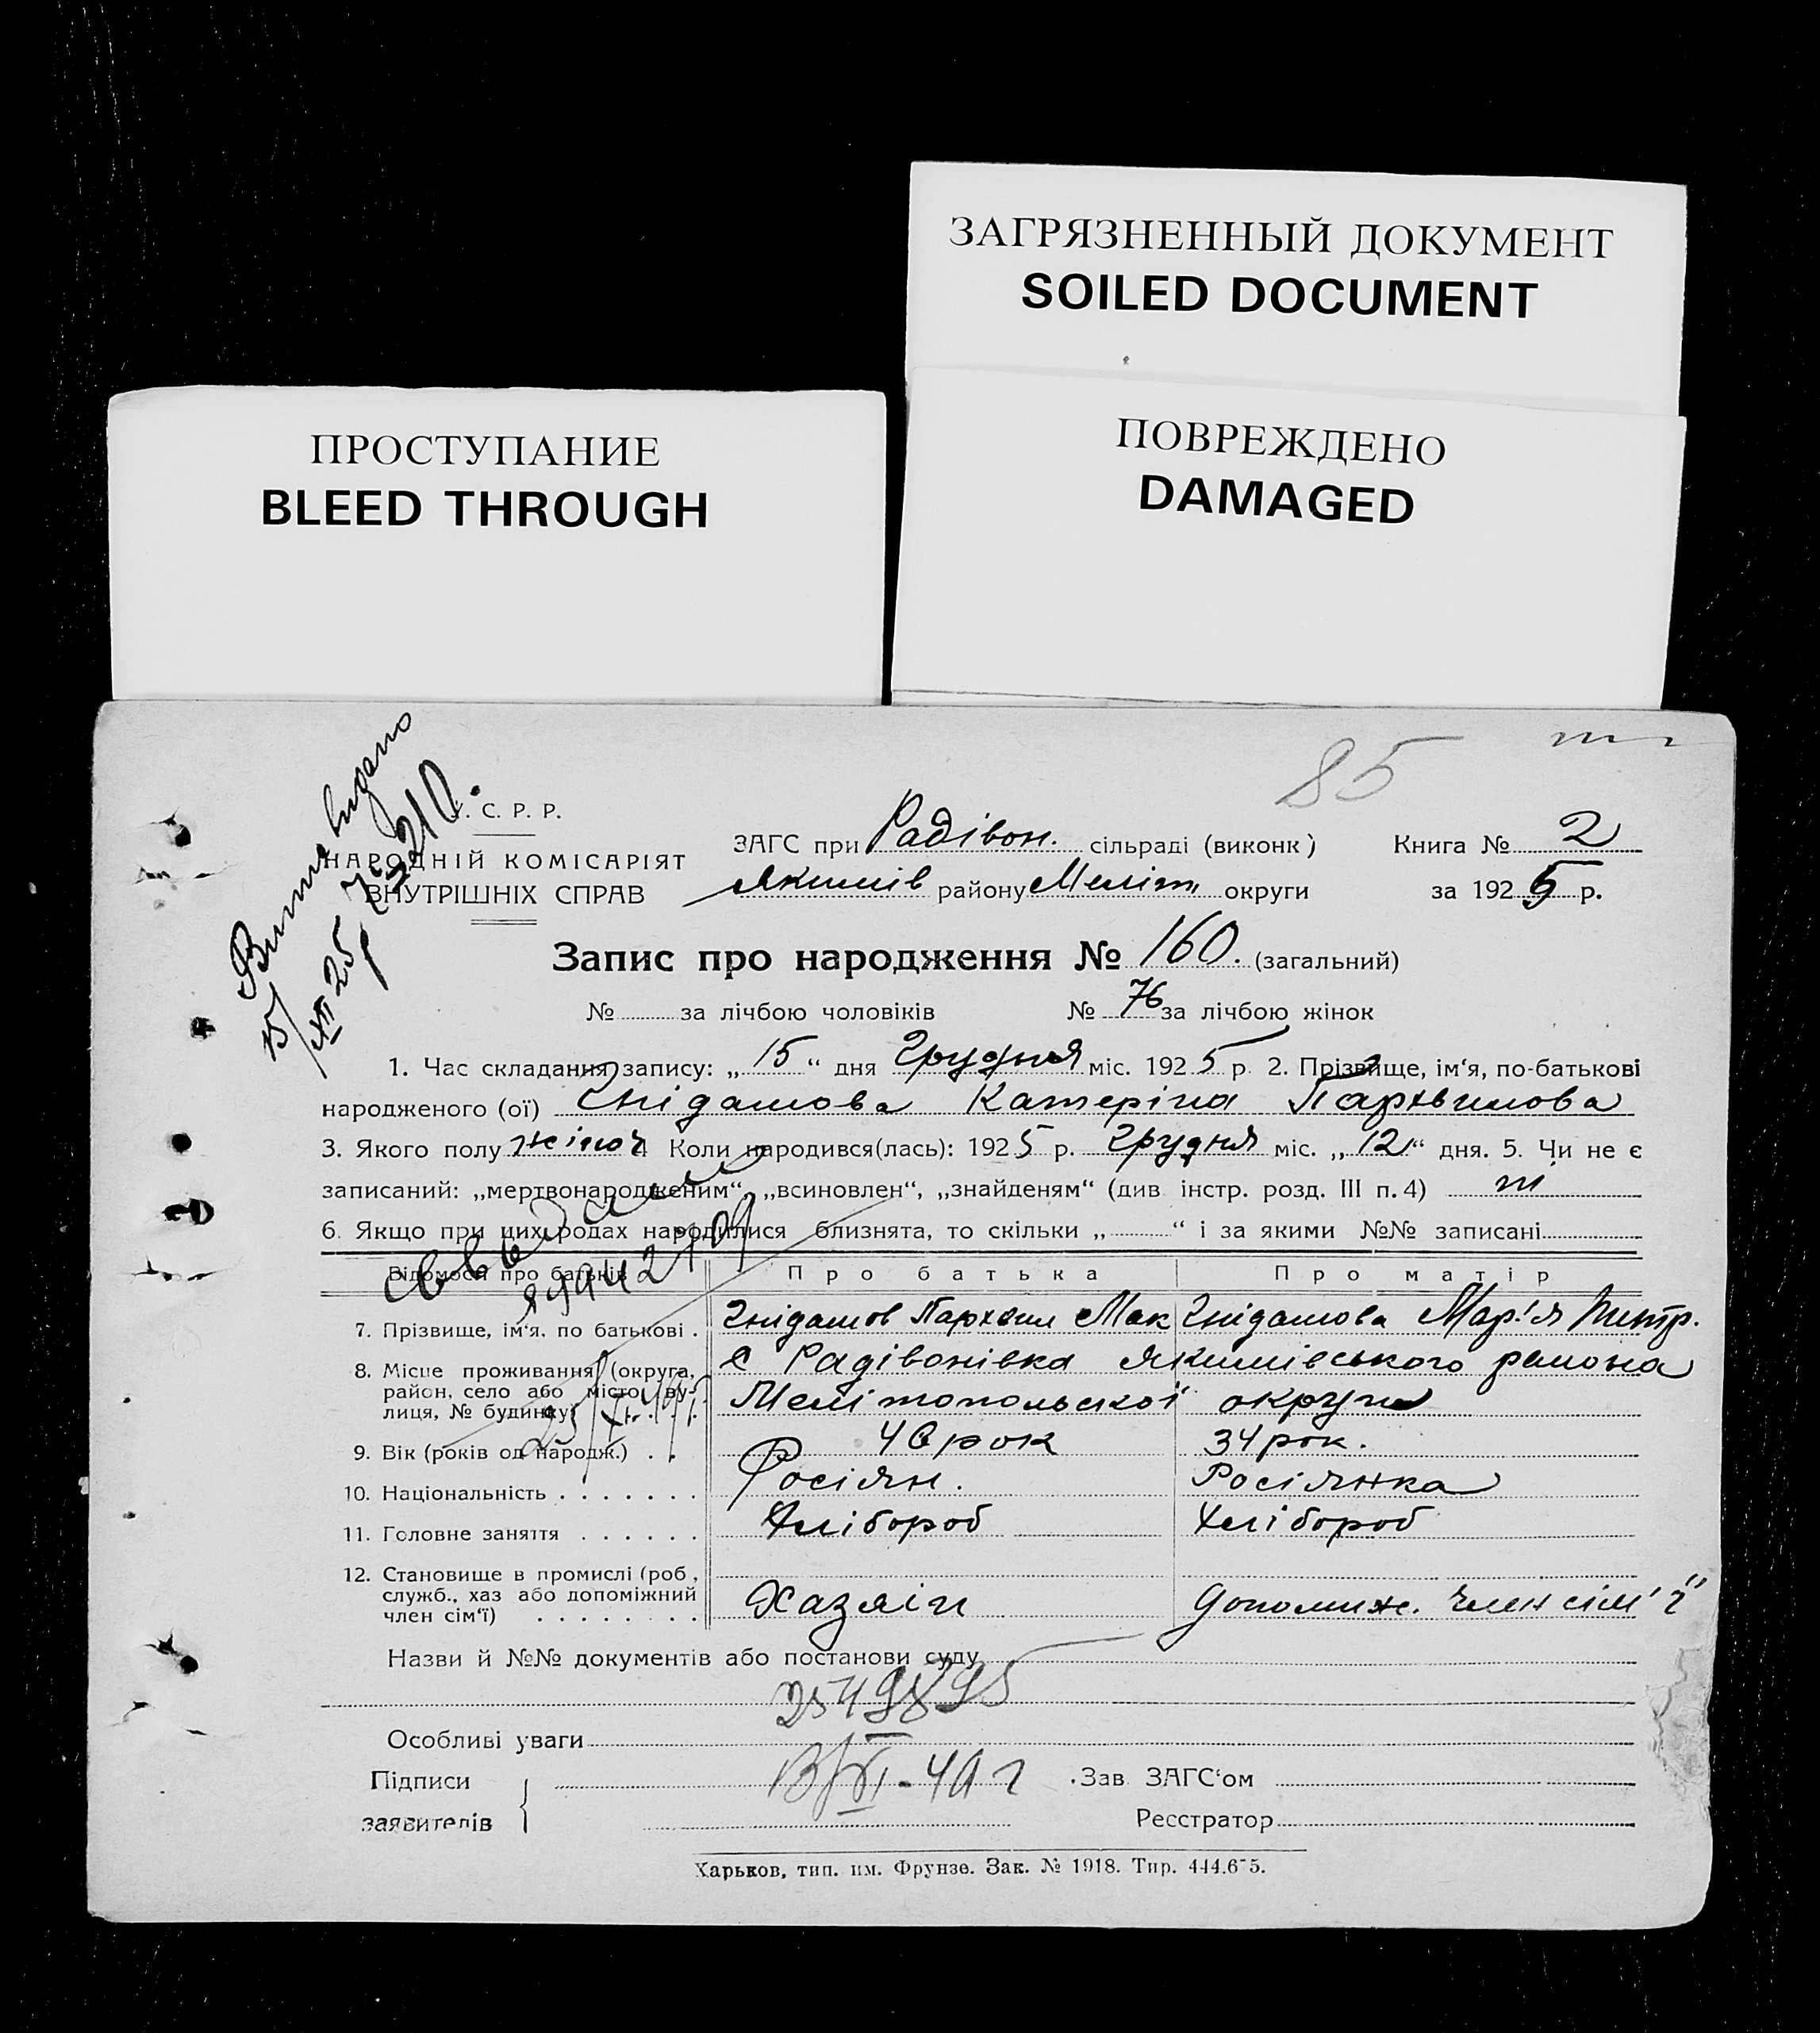 ЗАГРЯЗНЕННЫЙ ДОКУМЕНТ
SOILED DOCUMENT
ПРОСТУПАНИЕ
BLEED THROUGH
ПОВРЕЖДЕНО
DAMAGED
85
С. Р. Р.
НАРОДНІЙ КОМІСАРІЯТ
ВНУТРІШНІХ СПРАВ
ЗАГС при Радівон. сільраді (виконк)
Якимів району Меліт округи
Книга № 2
за 1925 р.
видано
15/XII 25 р
Запис про народження № 160. (загальний)
№ за лічбою чоловіків № 76 за лічбою жінок
1. Час складання запису: „15“ дня Грудня міс. 1925 р. 2. Прізвище, ім‘я, по-батькові
народженого (ої) Гнідашова Катеріна Пархвилова
3. Якого полу жіноч 4 Коли народився(лась): 1925 р. Грудня міс. „12“ дня. 5. Чи не є
записаний: „мертвонародженим“, „всиновлен“, „знайденям“ (див. інстр. розд. III п. 4) ні
6. Якщо при цих родах народилися близнята, то скільки „ “ і за якими №№ записані
Відомости про батьків Про батька Про матір
7. Прізвище, ім‘я, по батькові . Гнідашов Пархвил Мак Гнідашова Мар'я Питр.
8. Місце проживання (округа, район, село або місто, вулиця, № будинку) с Радівонівка Якимівського району
Мелітопольської округи
9. Вік (років од народж.) . . 40 рок 34 рок.
10. Національність . . . . . . . Росіян. Росіянка
11. Головне заняття . . . . . . Хлібороб Хлібороб
12. Становище в промислі (роб., служб., хаз або допоміжний член сім‘ї) . . . . . . . . Хазяін допоміж. член сім'ї
Назви й №№ документів або постанови суду
2549895
Особливі уваги
13/XI-40 г
Підписи заявителів
Зав. ЗАГС‘ом
Реєстратор
Харьков, тип. им. Фрунзе. Зак. № 1918. Тир.